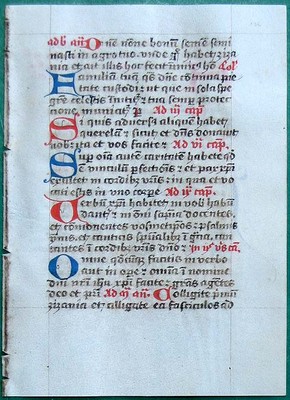 adb añ. Dñe nonne bonū semē semi
nasti in agro tuo unde gͦ habet ziza
nia et ait illis hoc fecit inimicꝰ hō Col'
Familiam tuā qs dñe cōtinua pie
tate custodi ut que in sola spe
gr̄e celestis inititur tua semp protec
tione muniat᷑ p̄ Ad iii cap̄.
Si quis adversꝰ aliquē habet
querelam sicut et dñs donauit
uobis ita et vos facite Ad vi cap̄.
Sup oīa autē caritatē habete qđ
ē vinculū pfectiōis et pax xp̄i
exultet in cordibꝫ vr̄is in qua et vo
cati estis in vno corpe Ad ix cap̄.
Verbū xp̄i habitet in vobis habun
dant᷑ in omī sapīa docentes
et cōmonentes vosmetip̄os psalmis
ymnis et canticis spūalibꝫ ī grā can
tantes ī cordibꝫ vr̄is dño
Omne qđcūqꝫ facitis in verbo
aut in opere omnia ī nomine
dñi nr̄i ihū xp̄i facite gr̄as agētes
deo et pr̄i Ad añ. Colligite pmū
zizania et alligate ea fasciculos ad